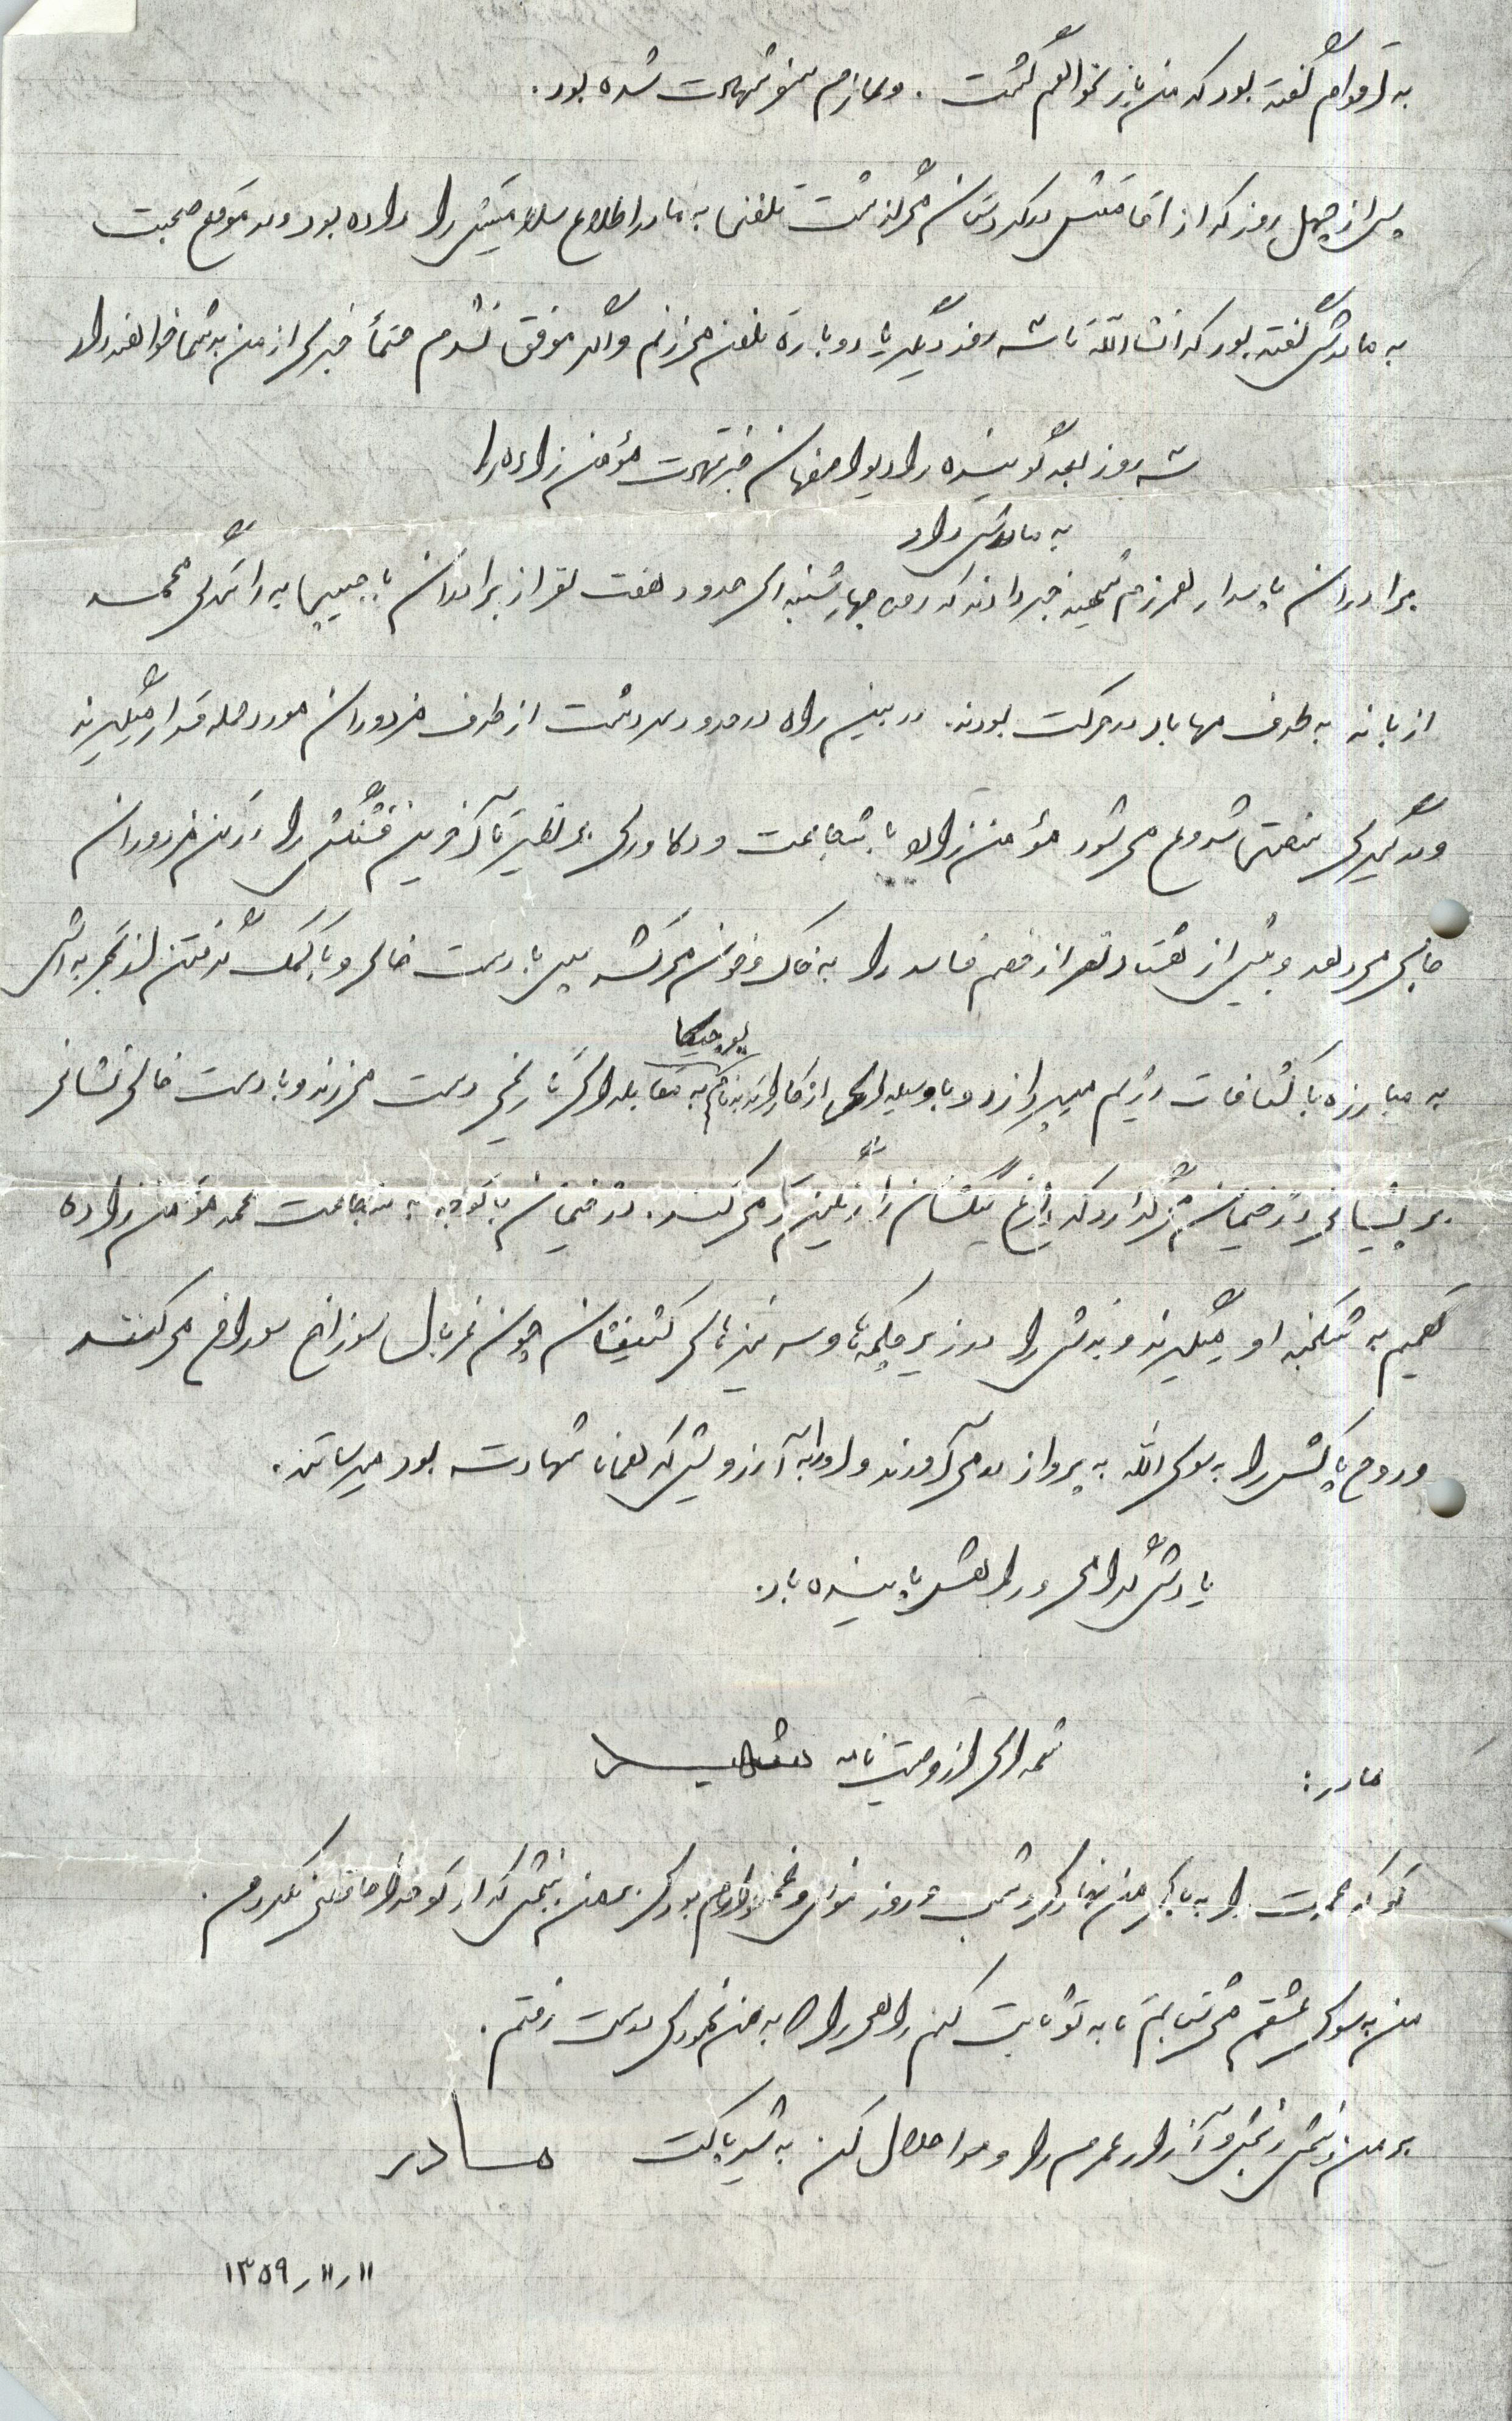 به اقوام گفته بود که من باز نخواهم گشت. و عازم سفر شهادت شده بود.
پس از چهل روز که از اقامتش در کردستان می‌گذشت تلفنی به مادر اطلاع سلامتیش را داده بود و در موقع صحبت
به مادرش گفته بود که انشاءالله تا سه روز دیگر یا دوباره تلفن میزنم و اگر موفق نشدم حتماً خبری از من به شما خواهند داد
سه روز بعد گوینده رادیو اصفهان خبر شهادت مؤمن زاده را
به مادرش داد
برادران پاسدار همرزم شهید خبر دادند که روز چهارشنبه‌ای حدود هفت نفر از برادران با جیپ به رانندگی محمد
از بانه به طرف مهاباد در حرکت بودند. در بین راه در حدود سردشت از طرف مزدوران مورد حمله قرار میگیرند
و درگیری سختی شروع می‌شود مؤمن زاده با شجاعت و دلاوری بی نظیر تا آخرین فشنگش را در تن مزدوران
جای میدهد و بیش از هشتاد نفر از خصم فاسد را به خاک و خون میکشد سپس با دست خالی و با کمک گرفتن از تجربه اش
به مبارزه با کثافات رژیم میپردازد و با وسیله‌ای از کاراته به نام بورجیکا به مقابله‌ای تاریخی دست میزند و با دست خالی نشانی
بر پیشانی دژخیمان میگذارد که داغ ننگشان را ننگین‌تر می‌کند. دژخیمان با توجه به شجاعت محمد مؤمن زاده
تصمیم به شکنجه او میگیرند و بدنش را در زیر چکمه‌ها و سر نیزه‌های کثیفشان چون غربال سوراخ سوراخ می‌کنند
و روح پاکش را به سوی الله به پرواز در می‌آورند و او را به آرزویش که همانا شهادت بود میرسانند.
یادش گرامی و راهش پاینده باد.
شمه‌ای از وصیت نامه شهید
مادر:
تو که محبت را به پای من نهادی و شب و روز غمخوارم بودی بر من ببخش که از تو خداحافظی نکردم.
من به سوی عشقم می‌شتابم تا به تو ثابت کنم راهی را که به من نمودی درست رفتم.
بر من ببخش رنجش و آزار عمرم را و مرا حلال کن به شیر پاکت مادر
۱۳۵۹٫۱۱٫۱۱